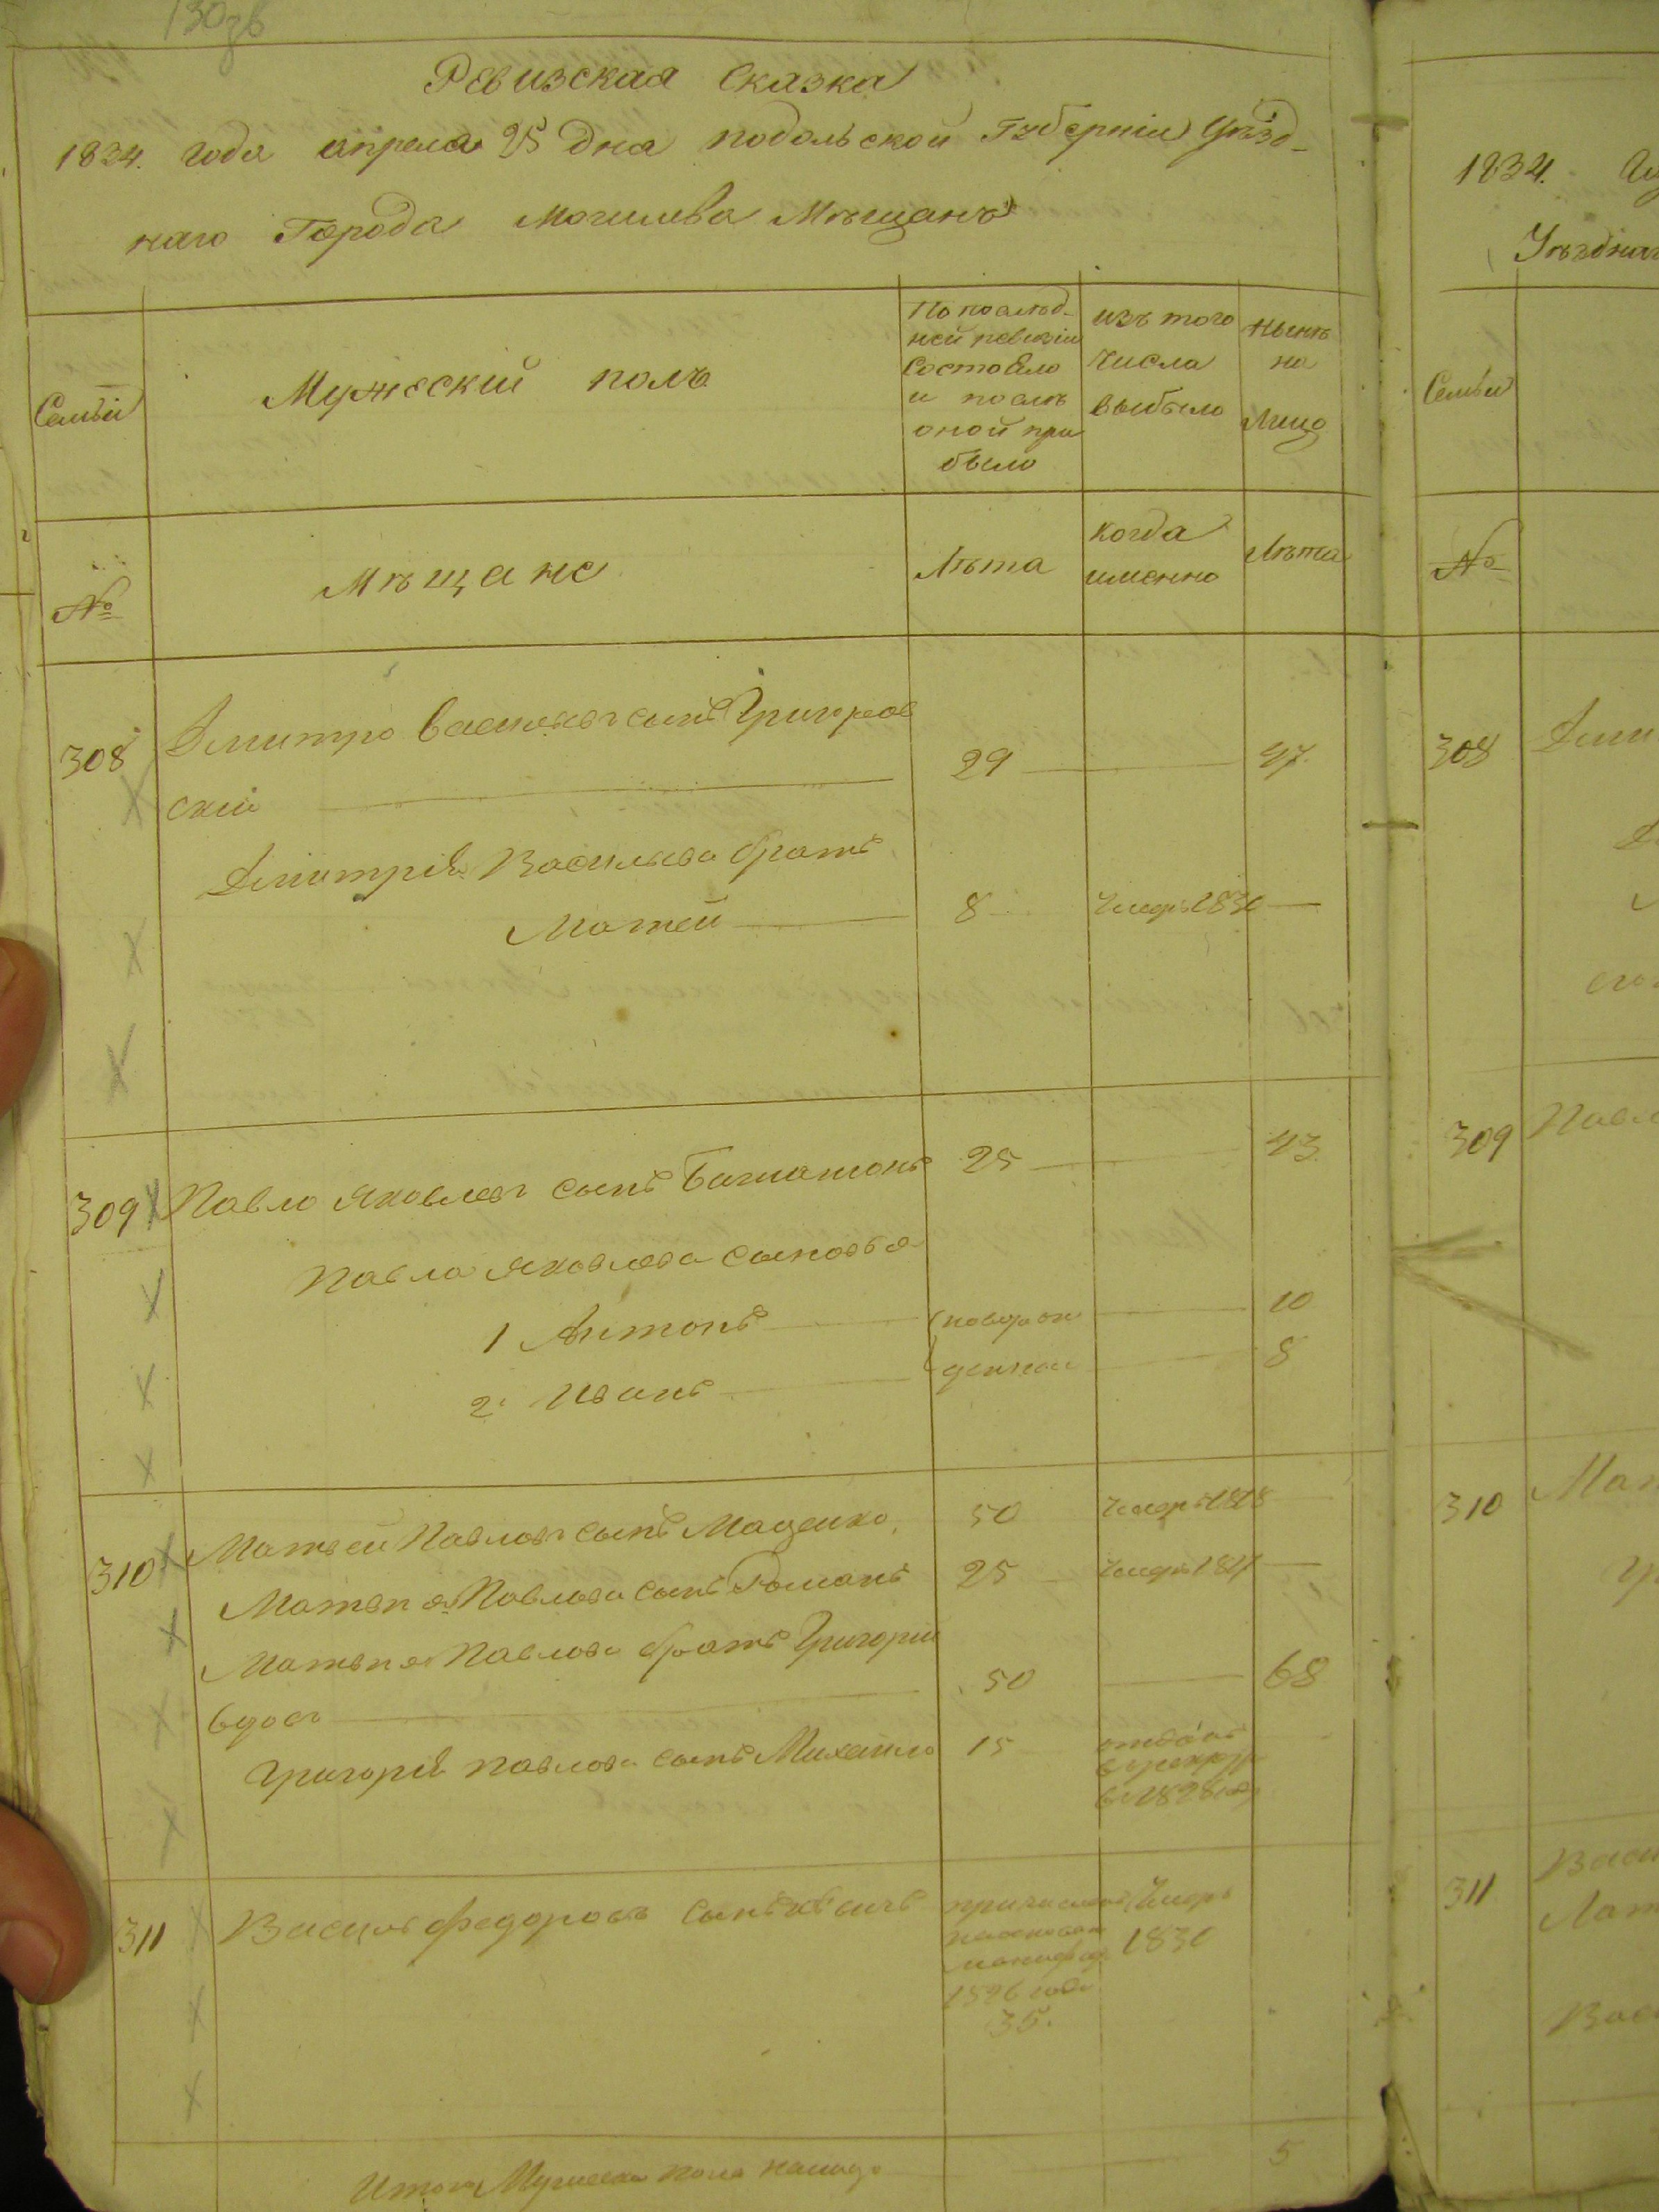 130зв
Ревизская Сказка
1834. года апреля 25 дня подольской Губерніи Уѣзд-
наго Города Могилева Мѣщанъ
Семьи
Мужескій полъ
По послѣд-
ней ревизіи
состояло
и послѣ
оной при
было
изъ того
числа
выбыло
нынѣ
на
лицо
№
Мѣщане
Лѣта
когда
именно
Лѣта
308
Дмитро Васильевъ сынъ Григоров
скій
29
47.
Дмитрія Васильева братъ
Матей
8
Умеръ 1830
309
Павло Яковлевъ сынъ
25
43
Павла Яковлева сыновья
1 Антонъ
новорож
10
2. Иванъ
денные
8
310
Матвей Павловъ сынъ Маценко
50
Умеръ 1818
Матвея Павлова сынъ Романъ
25
Умеръ
Матвея Павлова братъ Григорій
вдовъ
50
68
Григорія Павлова сынъ Михайло
15
отданъ
в рекруты
в 1828 год
311
Федоровъ сынъ
причисленъ
1826 года
35.
Умеръ
1830
Итого Мужеска пола налицо
5
1834.
Уѣзднаг
Семьи
№
308
Дми
309
Павл
310
Мат
311
Васи